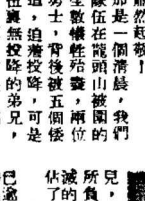 肅然起敬!
那是一個清晨，我們
隊伍在龍頭山被圍的
生數犧牲殆盡，兩位
勇士，背後被五個倭
追，迫着投降，可是
伍裏無投降的弟兄，
兒，
所負
滅的
佔了